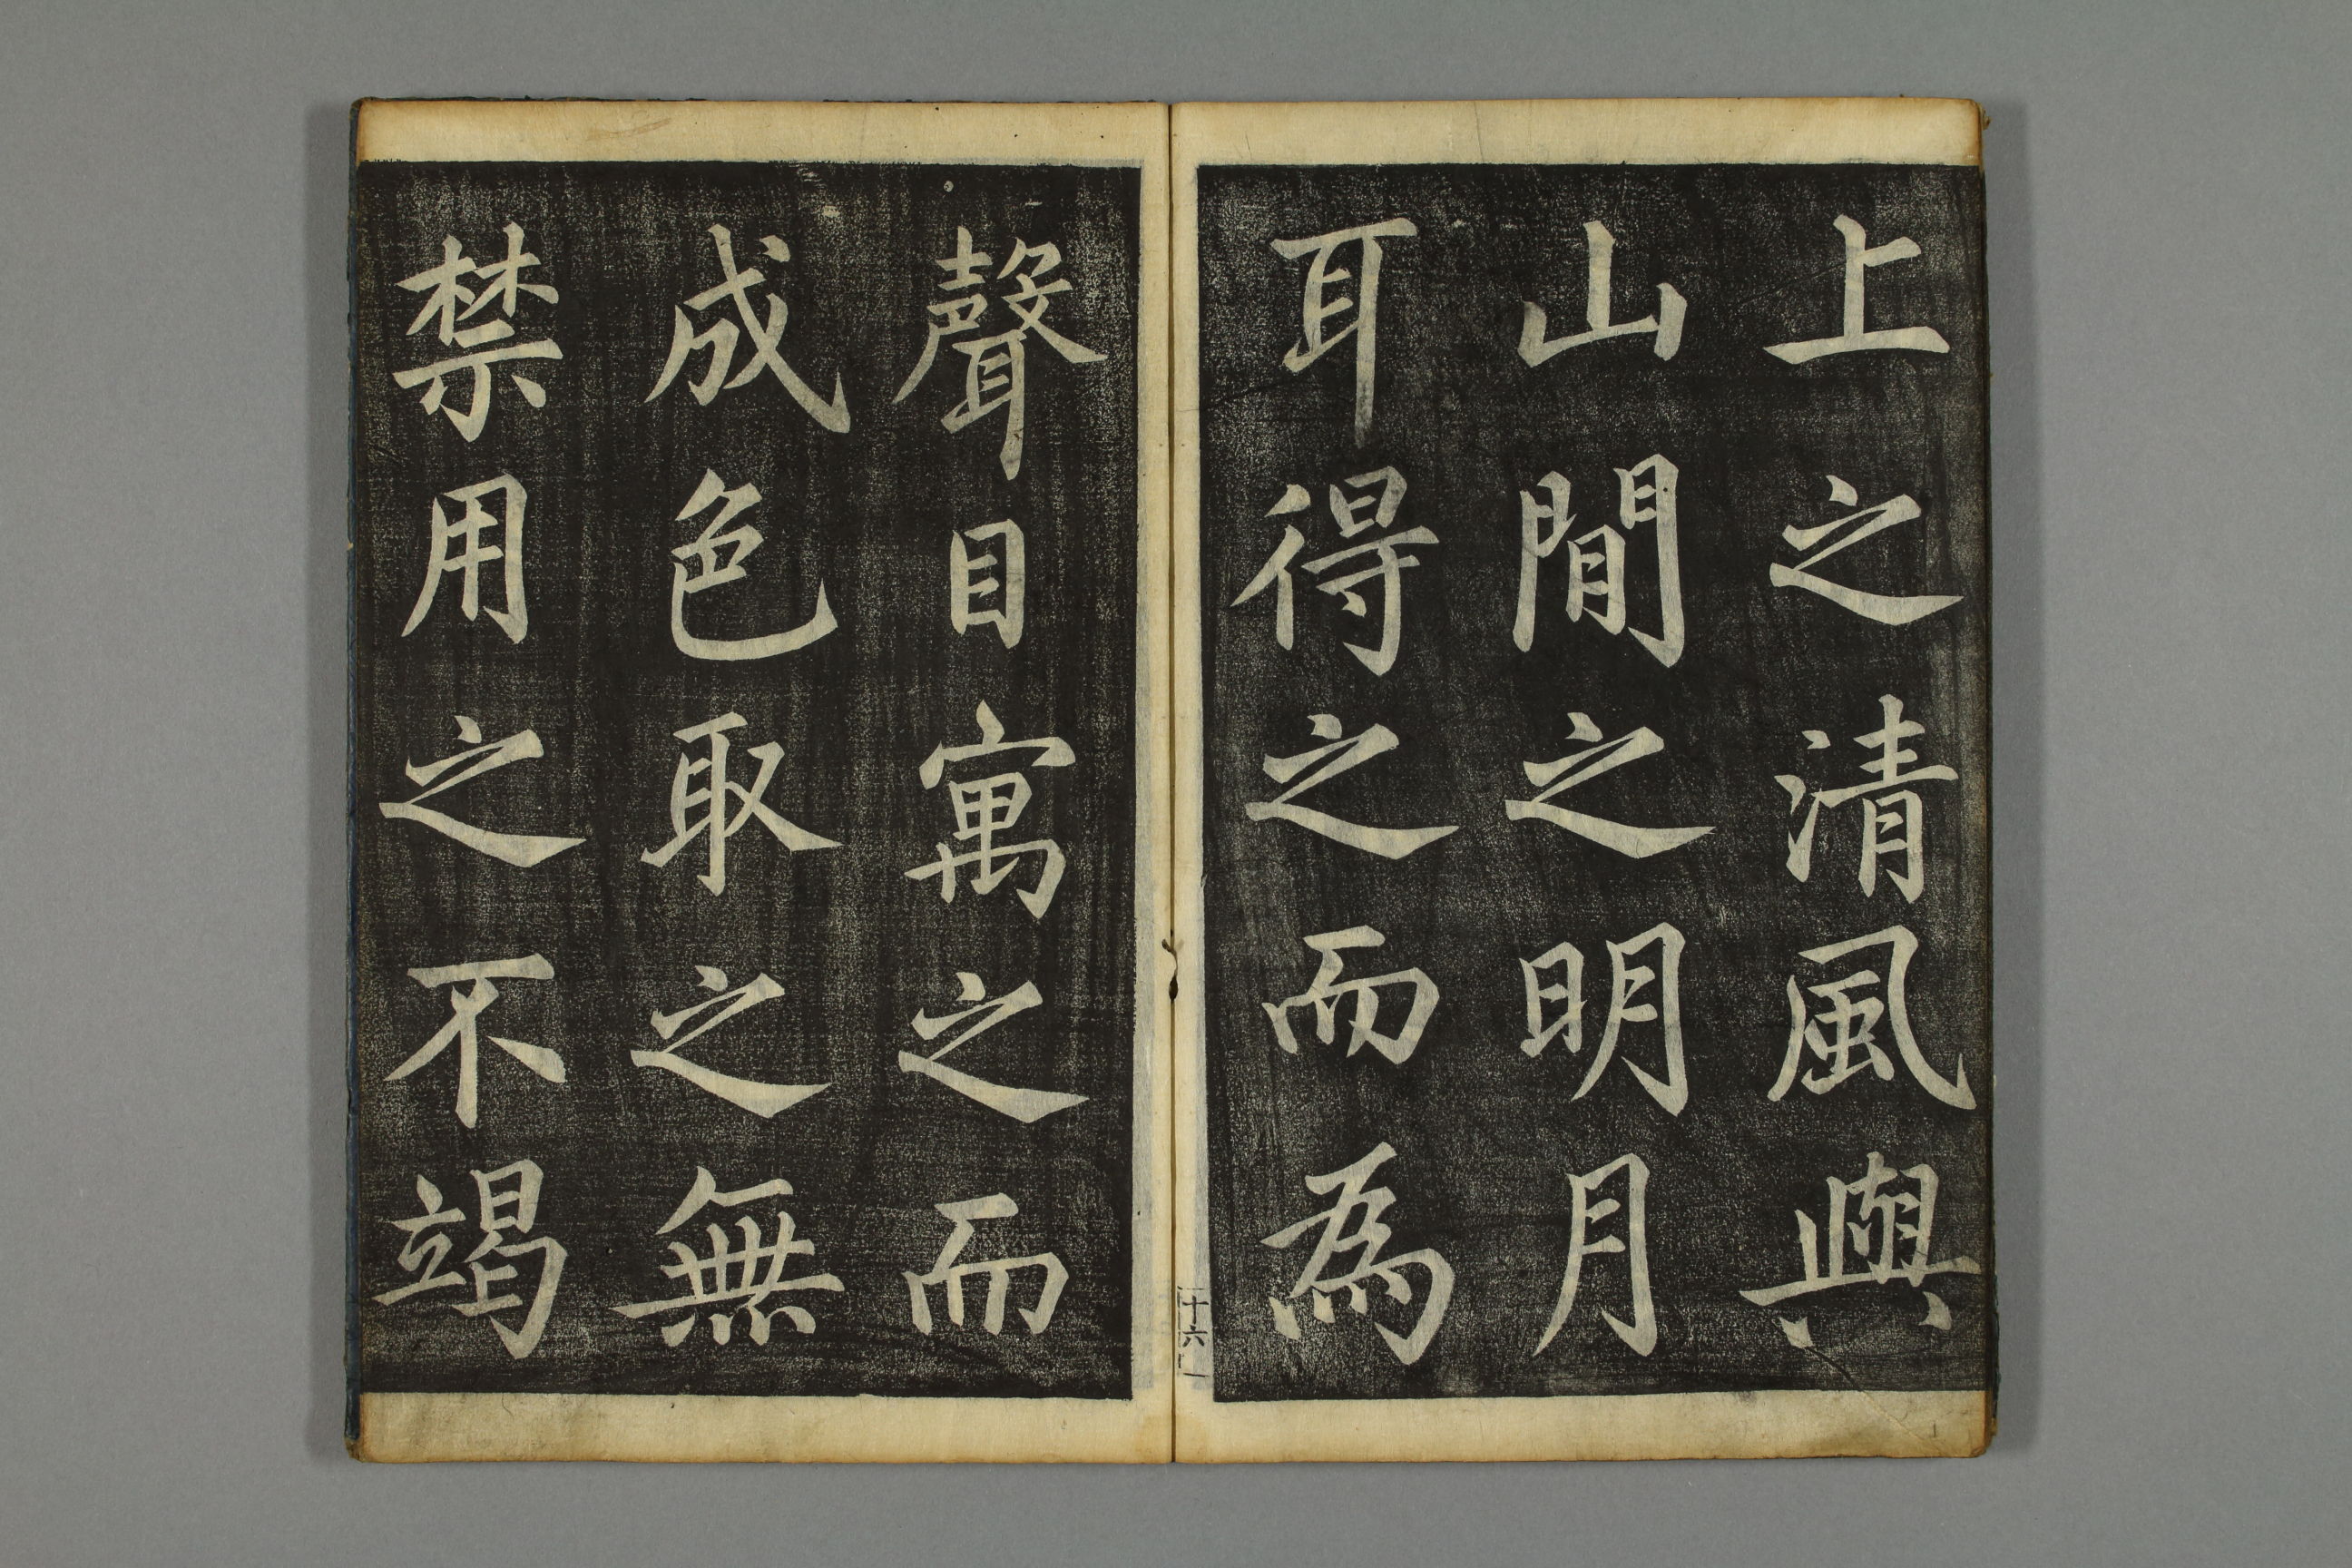 上之清風與
山間之明月
耳得之而為
聲目寓之而
成色取之無
禁用之不竭
十六